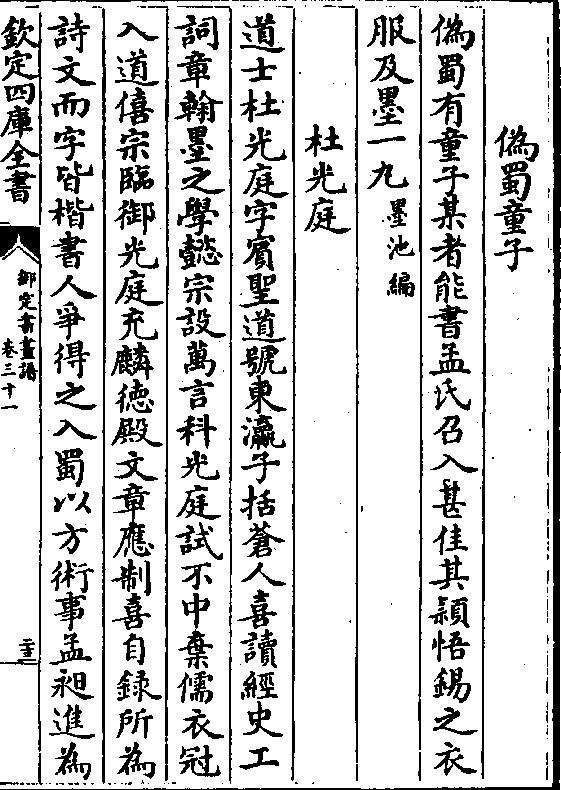 偽蜀童子
偽蜀有童子某者能書孟氏召入甚佳其穎悟錫之衣
服及墨一丸墨池編
杜光庭
道士杜光庭字賓聖道號東瀛子括蒼人喜讀經史工
詞章翰墨之學懿宗設萬言科光庭試不中棄儒衣冠
入道僖宗臨御光庭充麟德殿文章應制喜自録所為
詩文而字皆楷書人爭得之入蜀以方術事孟昶進為
欽定四庫全書
御定書畫譜
卷三十一
二十三